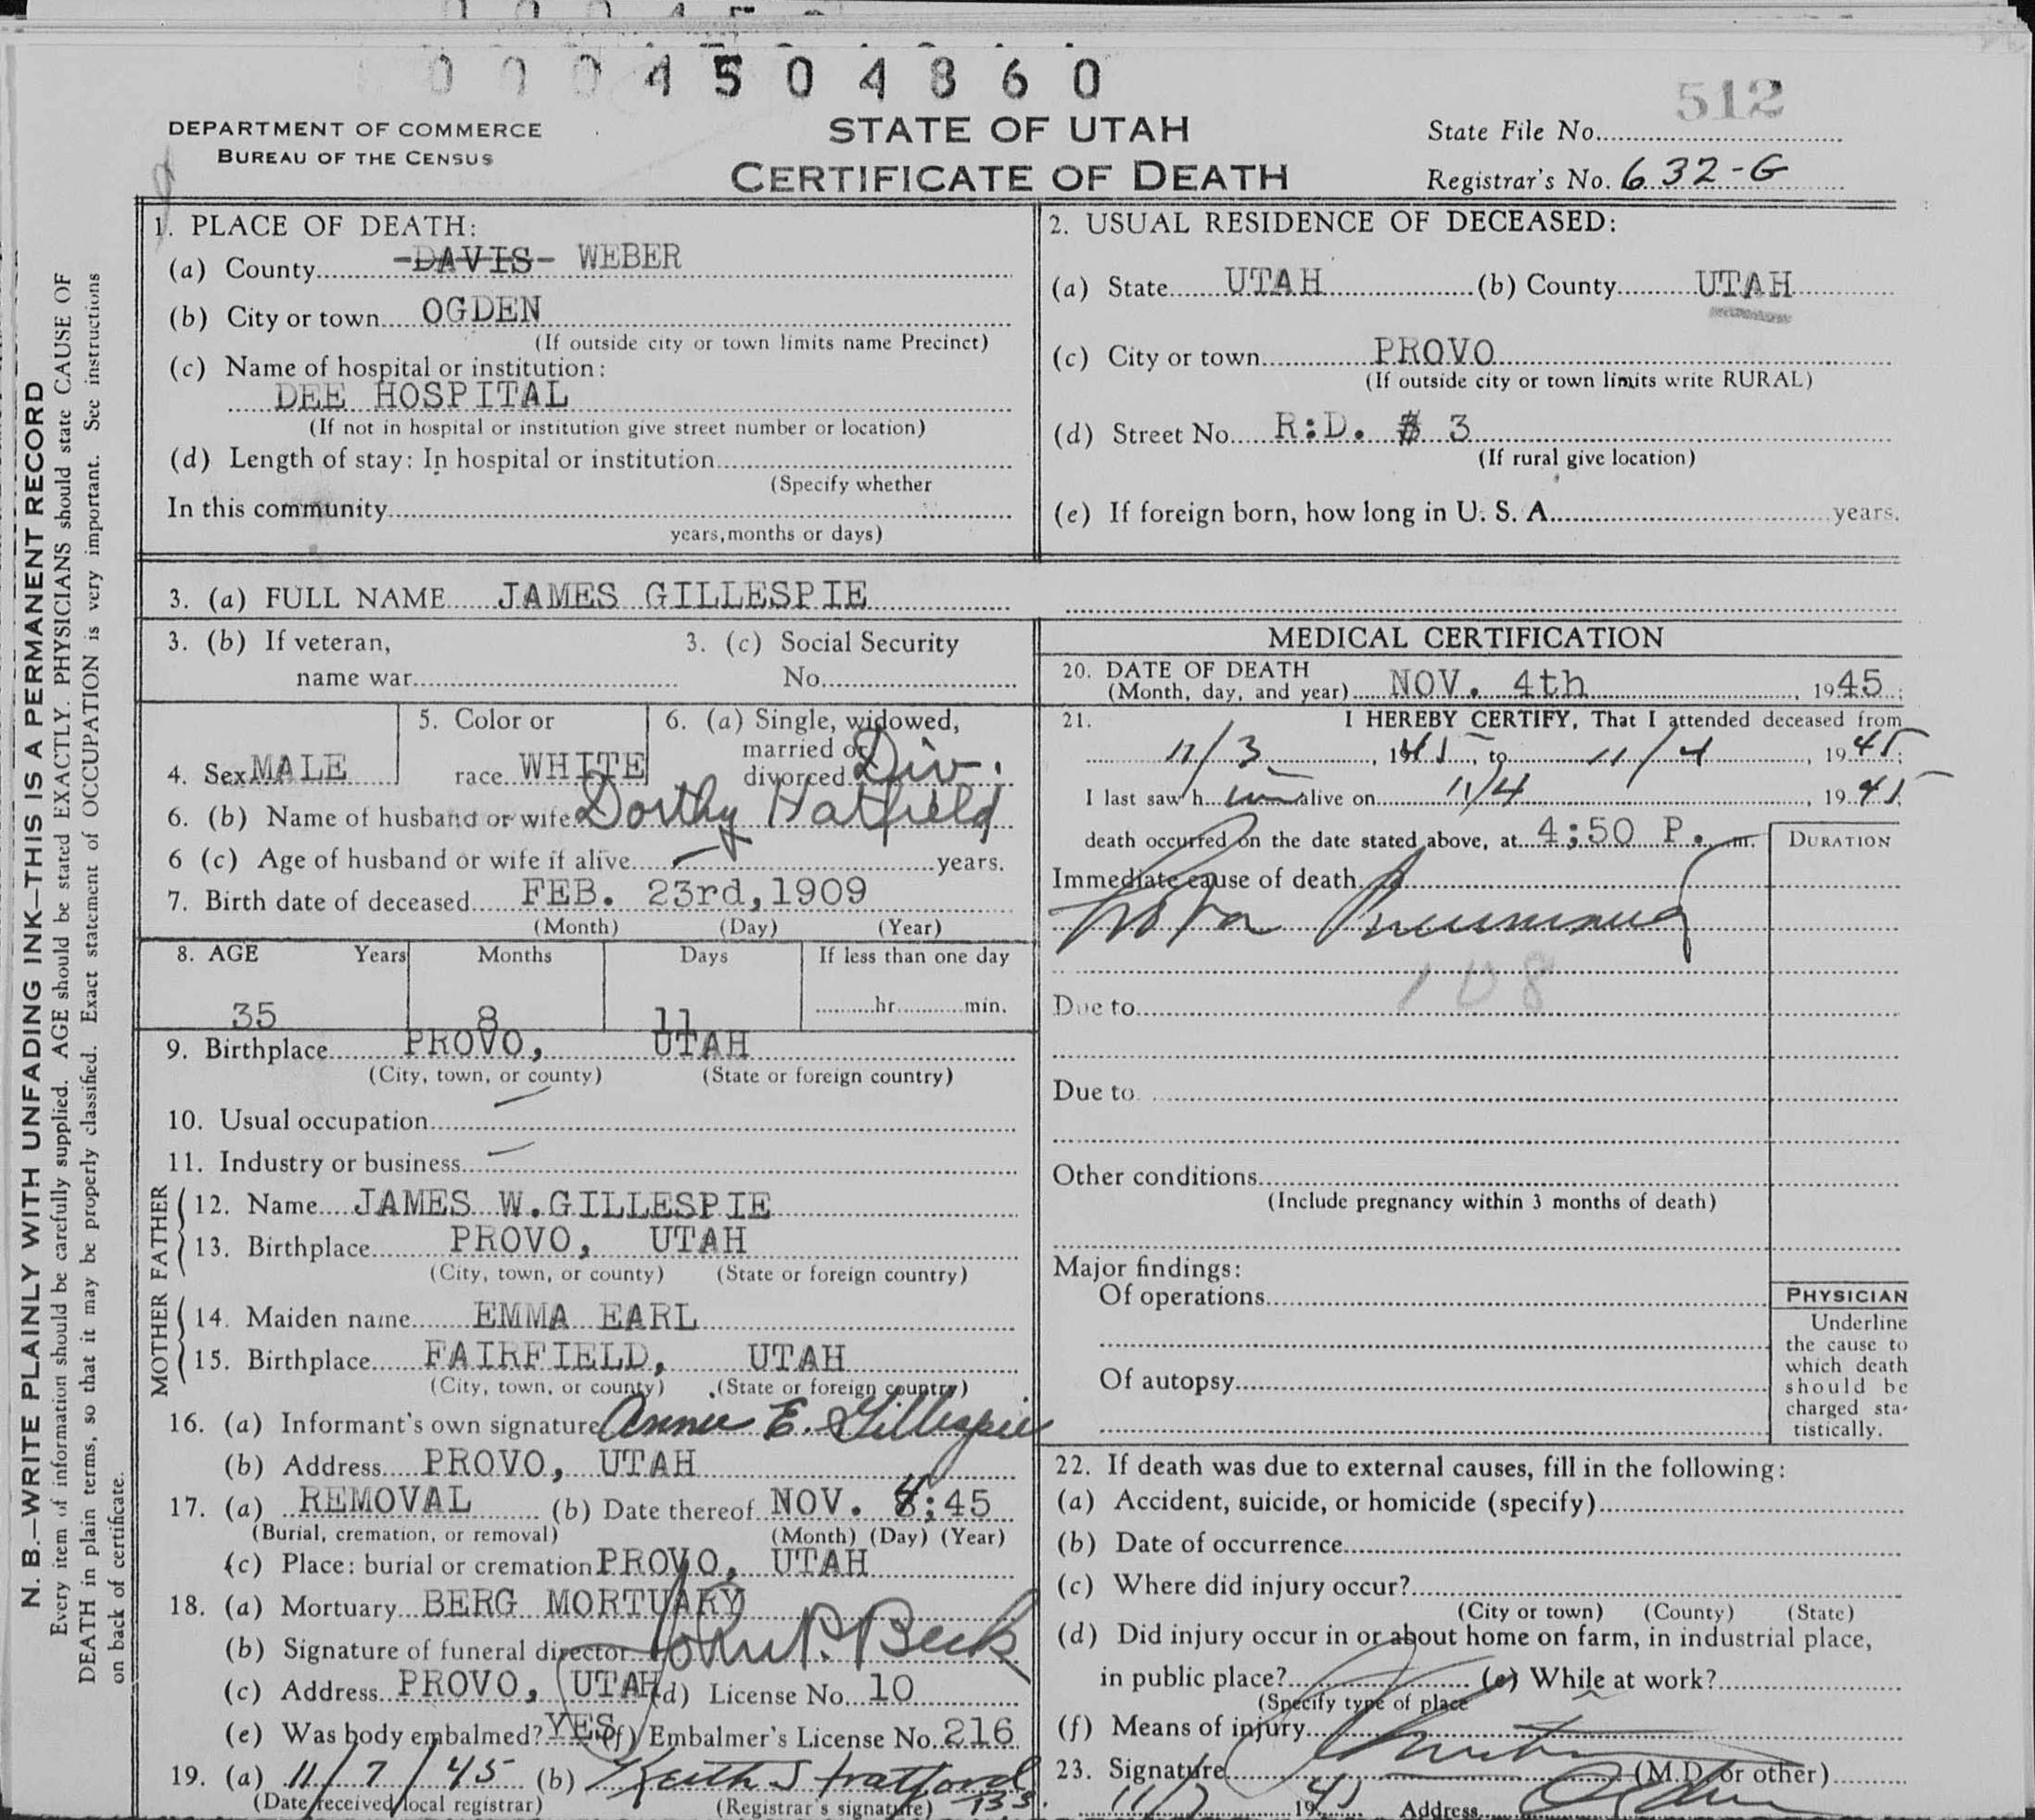 0004504860
512
DEPARTMENT OF COMMERCE
BUREAU OF THE CENSUS
STATE OF UTAH
CERTIFICATE OF DEATH
State File No.
Registrar's No. 632-G
N. B.—WRITE PLAINLY WITH UNFADING INK—THIS IS A PERMANENT RECORD
Every item of information should be carefully supplied. AGE should be stated EXACTLY. PHYSICIANS should state CAUSE OF
DEATH in plain terms, so that it may be properly classified. Exact statement of OCCUPATION is very important. See instructions
on back of certificate.
1. PLACE OF DEATH:
(a) County DAVIS WEBER
(b) City or town OGDEN
(If outside city or town limits name Precinct)
(c) Name of hospital or institution:
DEE HOSPITAL
(If not in hospital or institution give street number or location)
(d) Length of stay: In hospital or institution
(Specify whether
In this community
years, months or days)
2. USUAL RESIDENCE OF DECEASED:
(a) State UTAH (b) County UTAH
(c) City or town PROVO
(If outside city or town limits write RURAL)
(d) Street No. R:D. # 3
(If rural give location)
(e) If foreign born, how long in U. S. A. years.
3. (a) FULL NAME JAMES GILLESPIE
3. (b) If veteran,
name war
3. (c) Social Security
No.
4. Sex MALE
5. Color or
race WHITE
6. (a) Single, widowed,
married or
divorced Div.
6. (b) Name of husband or wife Dorthy Hatfield
6 (c) Age of husband or wife if alive — years.
7. Birth date of deceased FEB. 23rd, 1909
(Month) (Day) (Year)
8. AGE Years Months Days If less than one day
35 8 11 hr. min.
9. Birthplace PROVO, UTAH
(City, town, or county) (State or foreign country)
10. Usual occupation —
11. Industry or business —
FATHER
12. Name JAMES W. GILLESPIE
13. Birthplace PROVO, UTAH
(City, town, or county) (State or foreign country)
MOTHER
14. Maiden name EMMA EARL
15. Birthplace FAIRFIELD, UTAH
(City, town, or county) (State or foreign country)
16. (a) Informant's own signature Annie E. Gillespie
(b) Address PROVO, UTAH
17. (a) REMOVAL (b) Date thereof NOV. 8; 45
(Burial, cremation, or removal) (Month) (Day) (Year)
(c) Place: burial or cremation PROVO, UTAH
18. (a) Mortuary BERG MORTUARY
(b) Signature of funeral director John P. Beck
(c) Address PROVO, UTAH (d) License No. 10
(e) Was body embalmed? YES (f) Embalmer's License No. 216
19. (a) 11/7/45 (b) Keith Stratford
(Date received local registrar) (Registrar's signature)
MEDICAL CERTIFICATION
20. DATE OF DEATH
(Month, day, and year) NOV. 4th, 1945
21. I HEREBY CERTIFY, That I attended deceased from
11/3, 1945, to 11/4, 1945;
I last saw him alive on 11/4, 1945;
death occurred on the date stated above, at 4:50 P. m.
DURATION
Immediate cause of death
Lobar Pneumonia
108
Due to
Due to
Other conditions
(Include pregnancy within 3 months of death)
Major findings:
Of operations
Of autopsy
PHYSICIAN
Underline
the cause to
which death
should be
charged sta-
tistically.
22. If death was due to external causes, fill in the following:
(a) Accident, suicide, or homicide (specify)
(b) Date of occurrence
(c) Where did injury occur?
(City or town) (County) (State)
(d) Did injury occur in or about home on farm, in industrial place,
in public place? (e) While at work?
(Specify type of place
(f) Means of injury
23. Signature (M.D. or other)
11/7 1945 Address Ogden